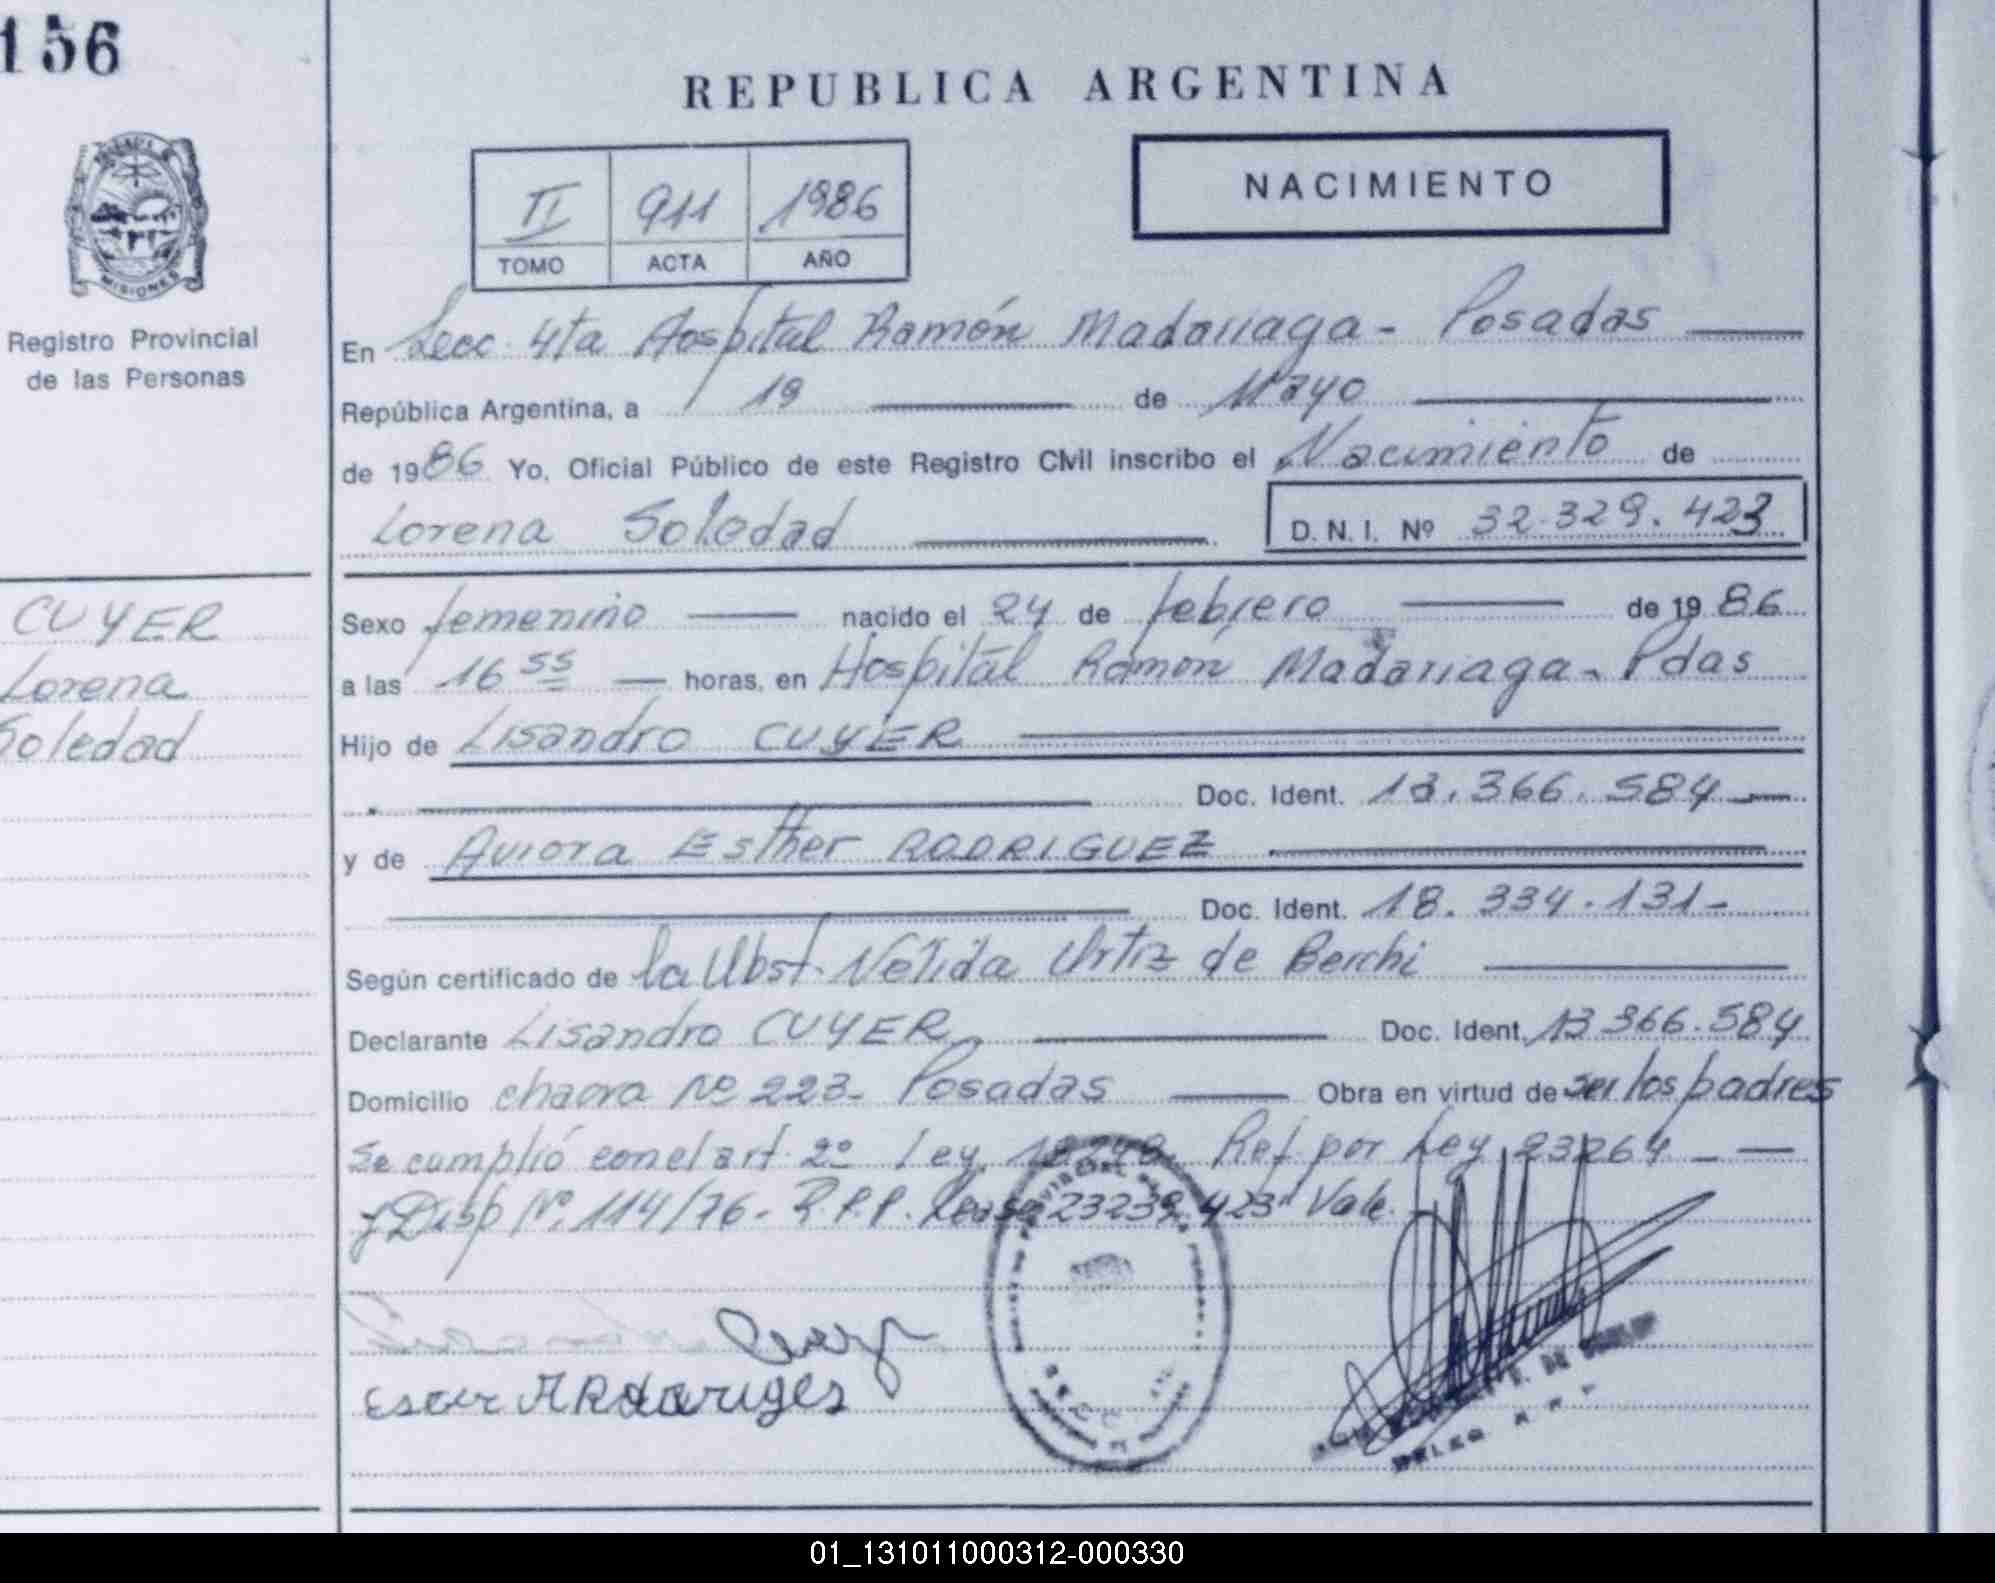 156
REPUBLICA ARGENTINA
II 911 1986
TOMO ACTA AÑO
NACIMIENTO
MISIONES
Registro Provincial
de las Personas
En Secc 4ta Hospital Ramón Madariaga - Posadas
República Argentina, a 19 de Mayo
de 1986 Yo, Oficial Público de este Registro Civil inscribo el Nacimiento de
Lorena Soledad D. N. I. Nº 32.329.423
CUYER
Lorena
Soledad
Sexo femenino nacido el 24 de febrero de 1986
a las 16 55 horas, en Hospital Ramón Madariaga - Pdas
Hijo de Lisandro CUYER
Doc. Ident. 13.366.584
y de Aurora Esther RODRIGUEZ
Doc. Ident. 18.334.131-
Según certificado de la Obst. Nélida Ortiz de Berchi
Declarante Lisandro CUYER Doc. Ident. 13.366.584
Domicilio chacra Nº 223- Posadas Obra en virtud de ser los padres
Se cumplió con el art. 2º Ley 18248 Ref. por Ley 23264
y Disp Nº 114/76- R.P.P. 423" Vale.
01_131011000312-000330